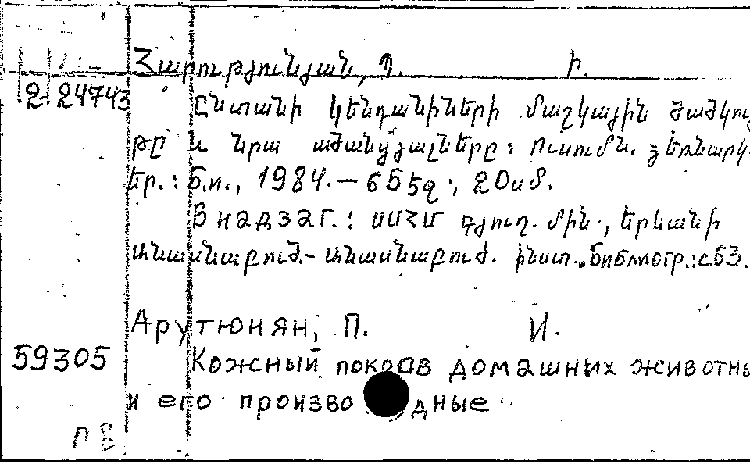 Հարությունյան, Պ. Ի.
2 24743 Ընտանի կենդանիների մաշկային ծածկույ
թը և նրա ածանցյալները: Ուսումն. ձեռնարկ
Եր.: Б.и., 1984. — 655զ., 20սմ.
В надзаг.: ՍՍՀՄ գյուղ. մին., Երևանի
անասնաբուծ.-անասնաբուժ. ինստ. Библиогр.: с.53.
Арутюнян, П. И.
59305 Кожный покров домашних животны
и его произво дные